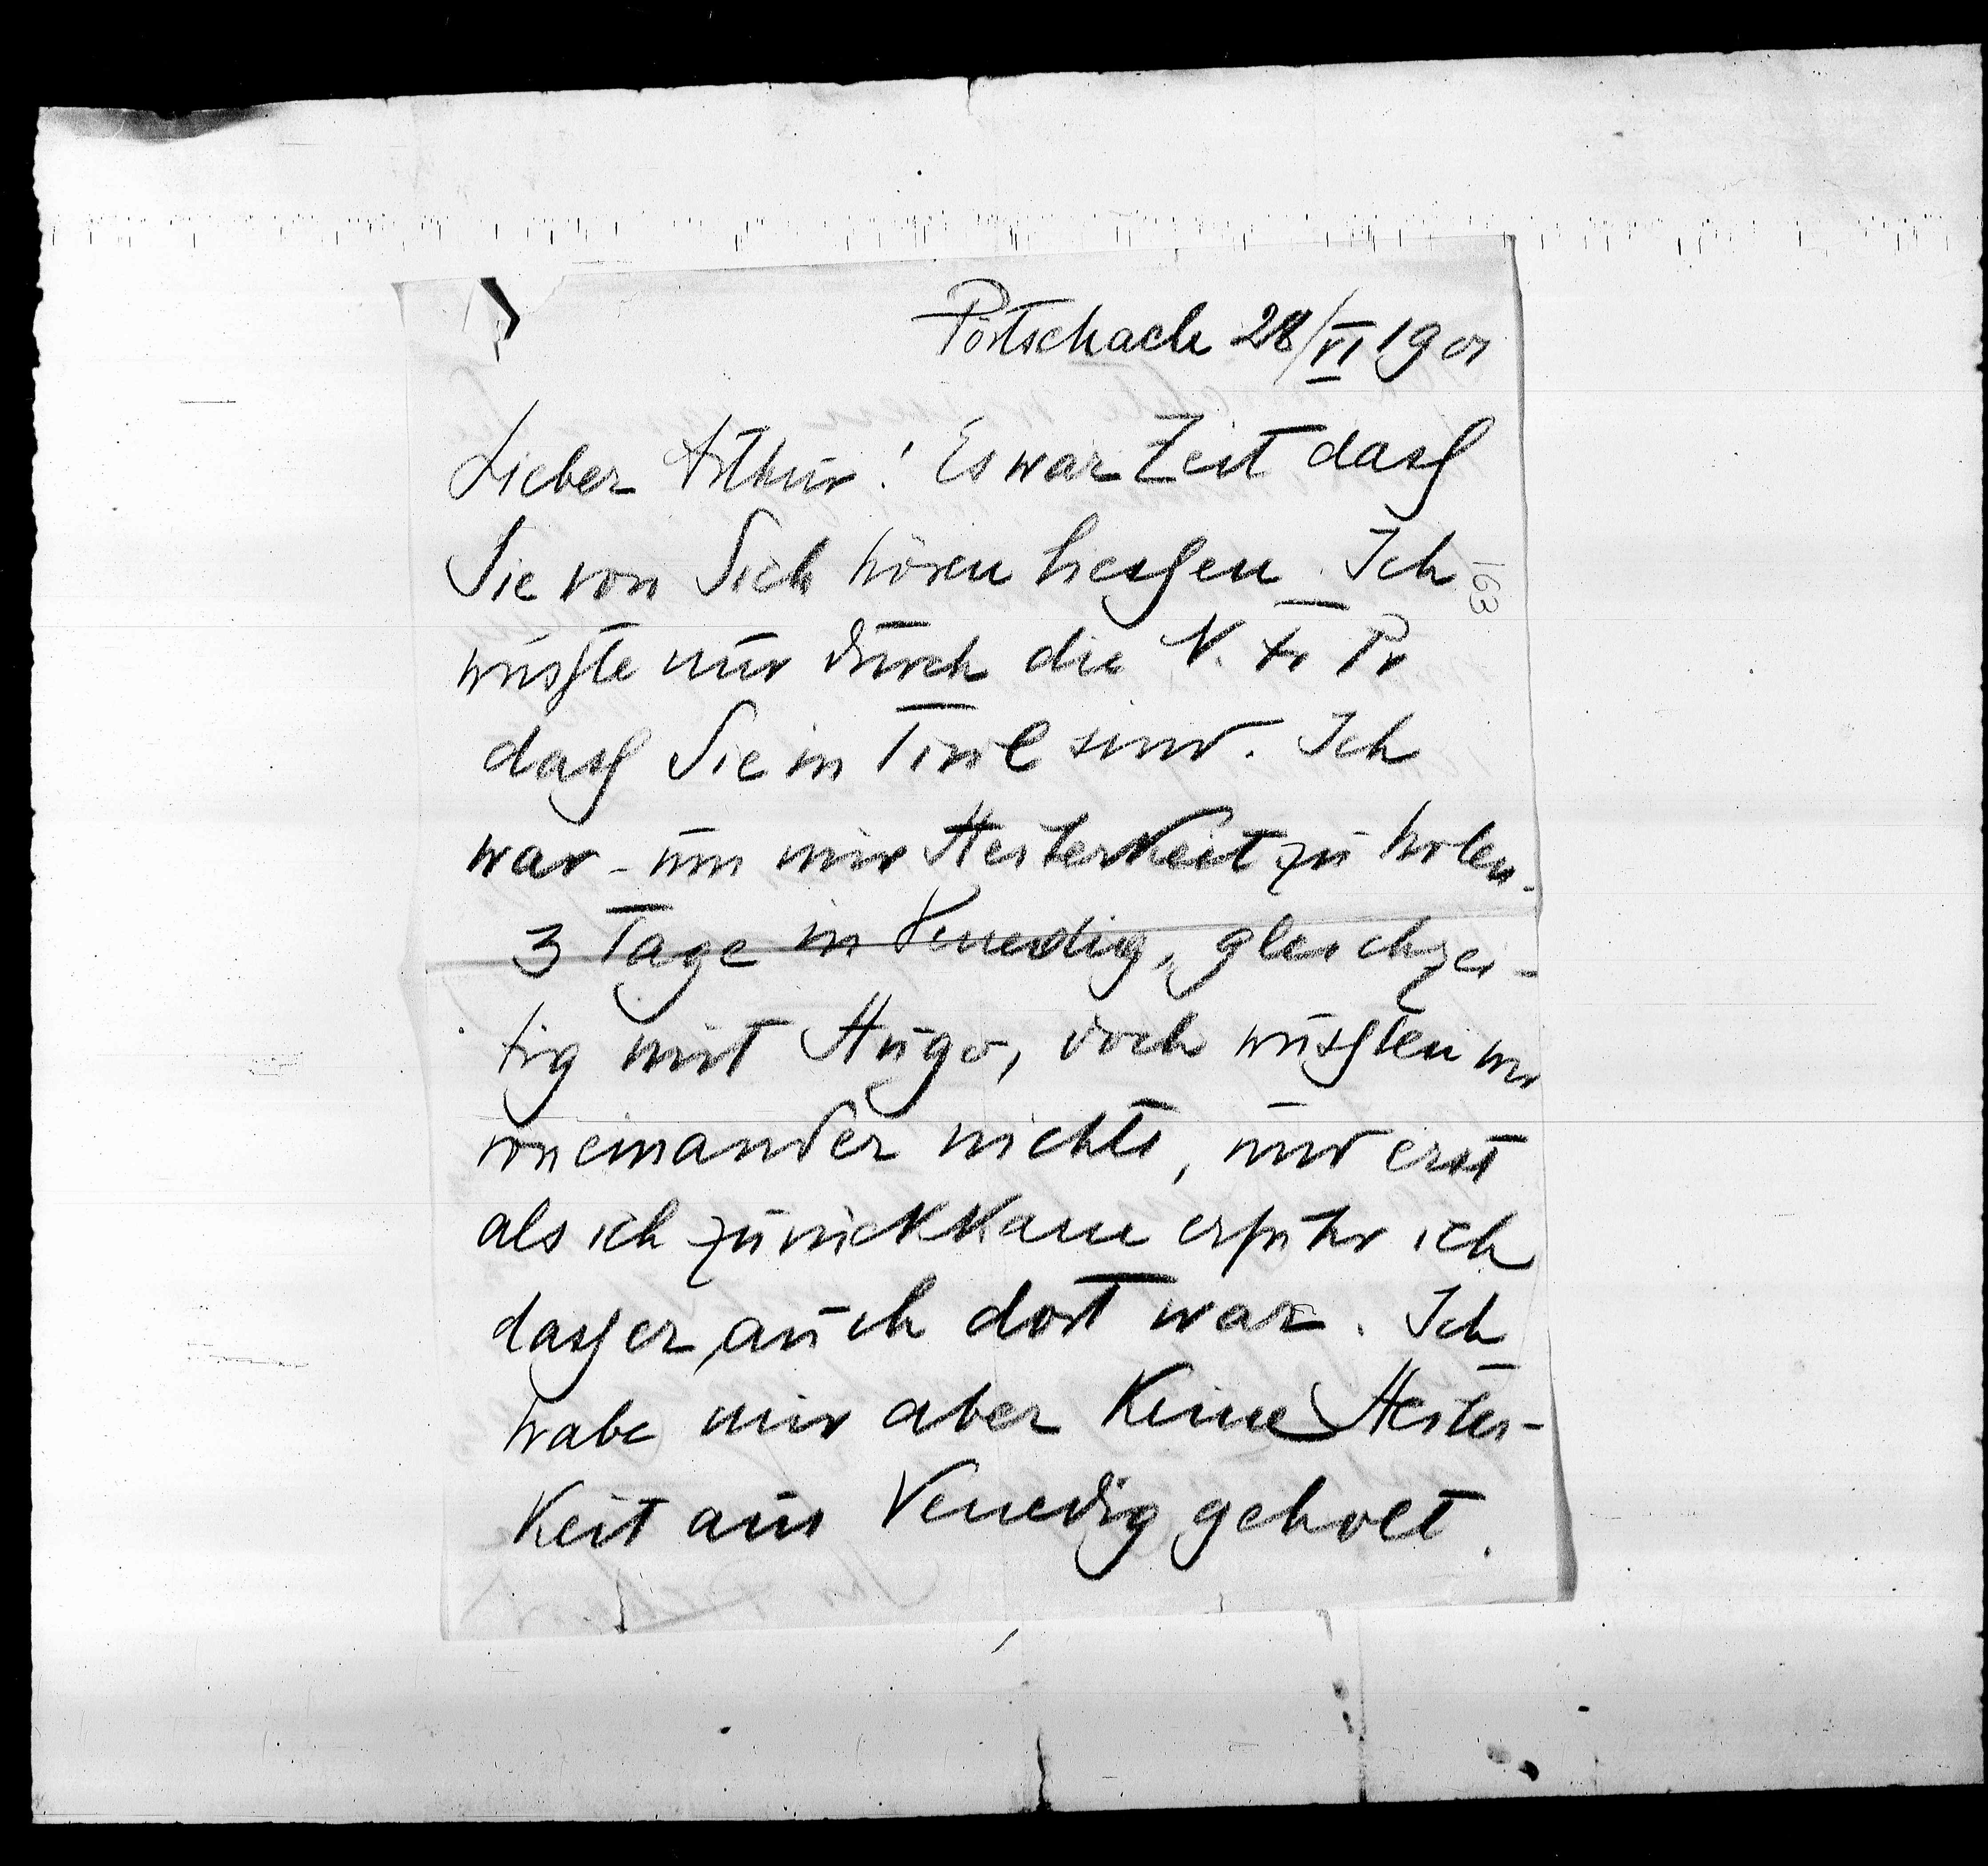 Pörtschach 28/VI 1901
Lieber Arthur! Es war Zeit dass
Sie von Sich hören liessen. Ich
163
wusste nur durch die N. Fr Pr
dass Sie in Tirol sind. Ich
war – um mir Heiterkeit zu holen –
3 Tage in Venedig, gleichzei-
tig mit Hugo, doch wussten wir
voneinander nichts, und erst
als ich zurückkam erfuhr ich
dass er auch dort war. Ich
habe mir aber keine Heiter-
keit aus Venedig geholt.